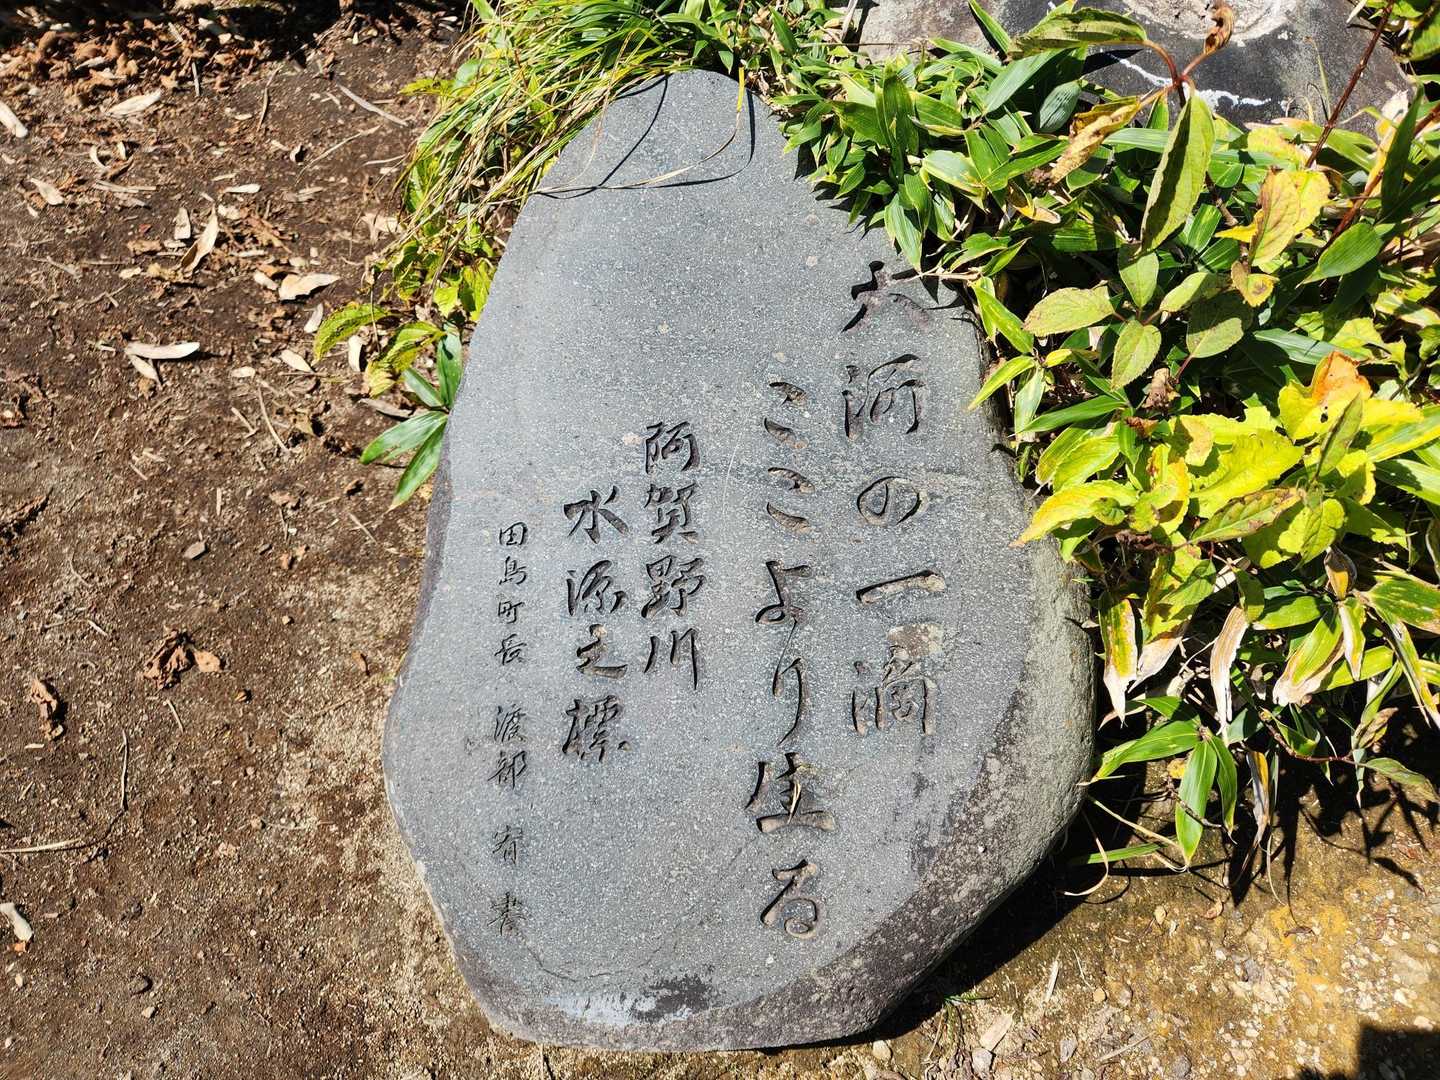 大河の一滴
ここより生る
阿賀野川
水源之標
田島町長 渡部 宥 書